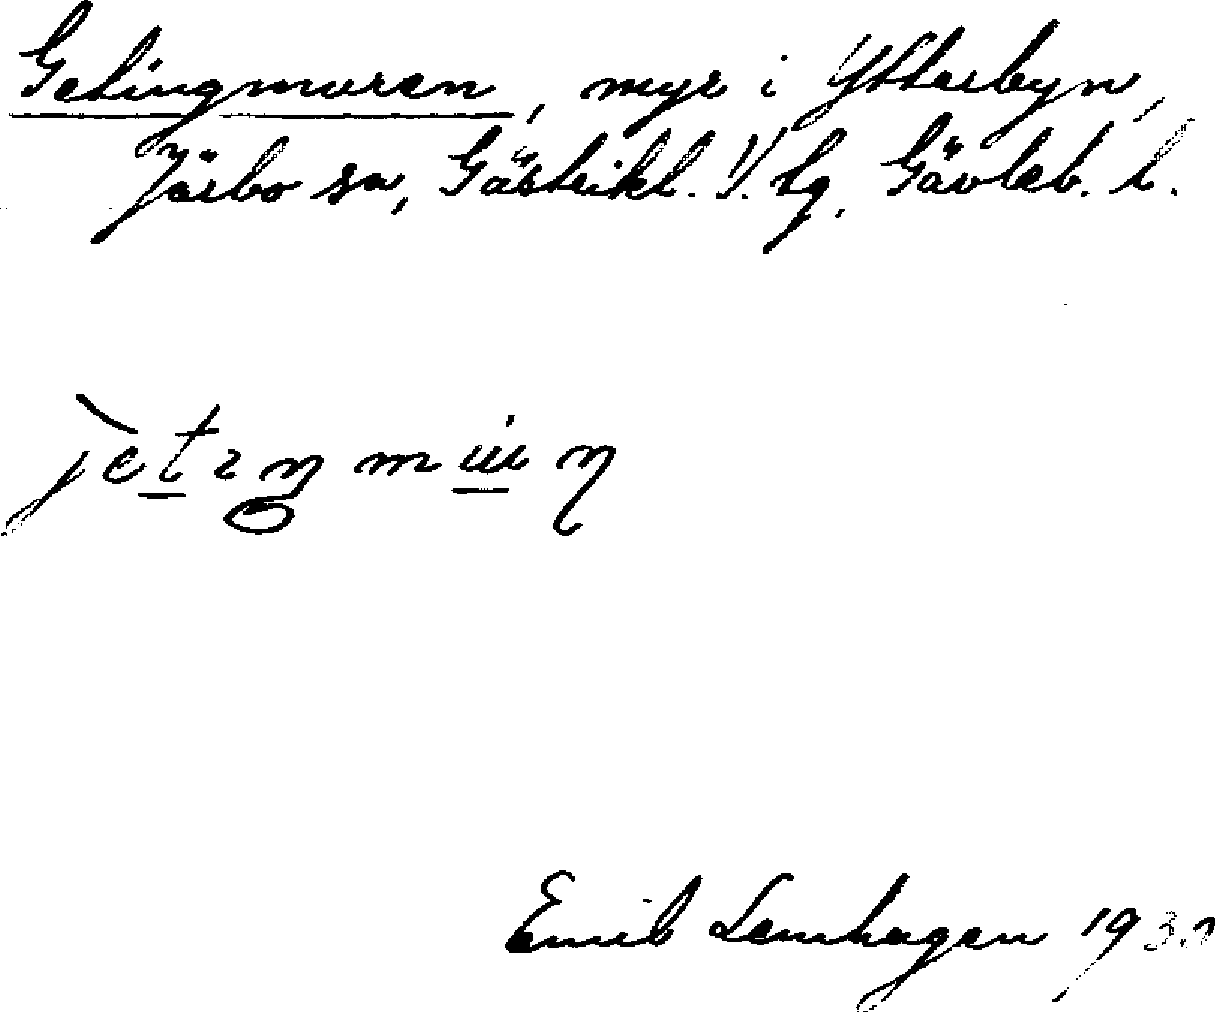 Getingmuren, myr i Ytterbyn,
Järbo sn, Gästrikl. V. tg, Gävleb. l.
Emil Lenhagen 1930